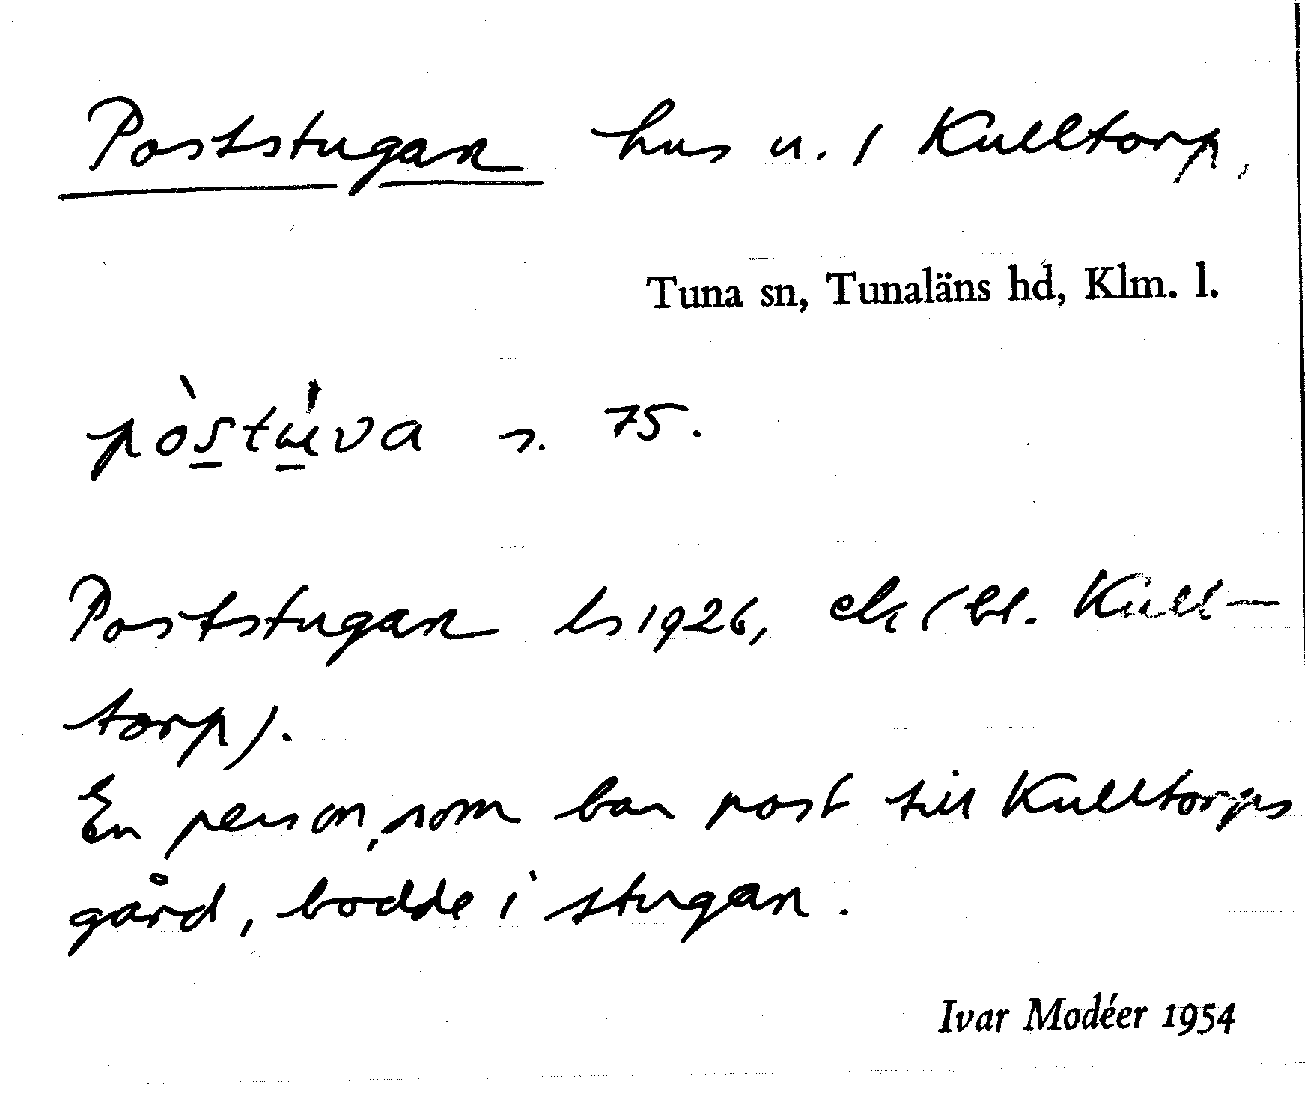 Poststugan hus u. 1 Kulltorp,
Tuna sn, Tunaläns hd, Klm. l.
pòstúva s. 75.
Poststugan ls 1926, ek (bl. Kull-
torp).
En person, som bar post till Kulltorps
gård, bodde i stugan.
Ivar Modéer 1954